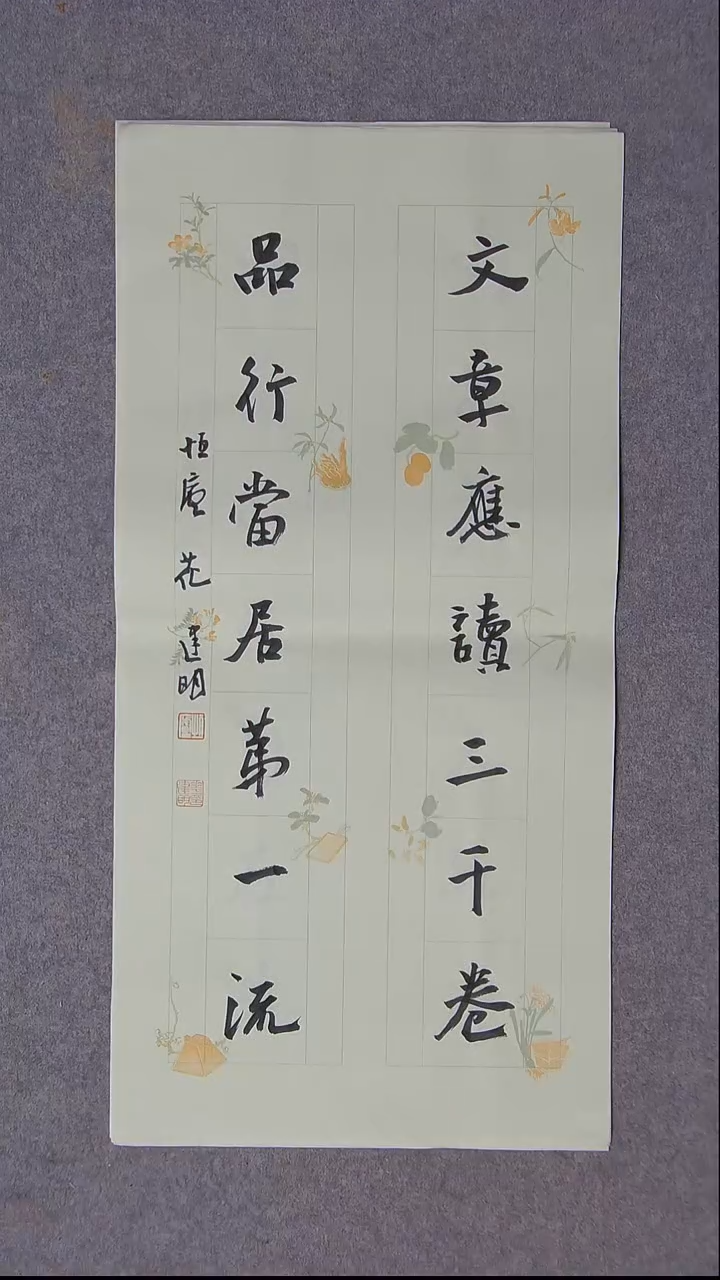 文章應讀三千卷
品行當居第一流
恒廬 花建明